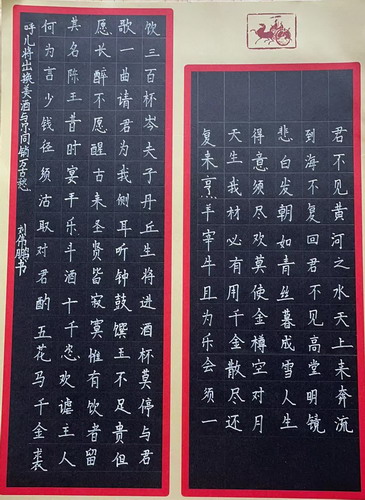 君不见黄河之水天上来奔流
到海不复回君不见高堂明镜
悲白发朝如青丝暮成雪人生
得意须尽欢莫使金樽空对月
天生我材必有用千金散尽还
复来烹羊宰牛且为乐会须一
饮三百杯岑夫子丹丘生将进酒杯莫停与君
歌一曲请君为我侧耳听钟鼓馔玉不足贵但
愿长醉不愿醒古来圣贤皆寂寞惟有饮者留
其名陈王昔时宴平乐斗酒十千恣欢谑主人
何为言少钱径须沽取对君酌五花马千金裘
呼儿将出换美酒与尔同销万古愁
刘伟鹏书